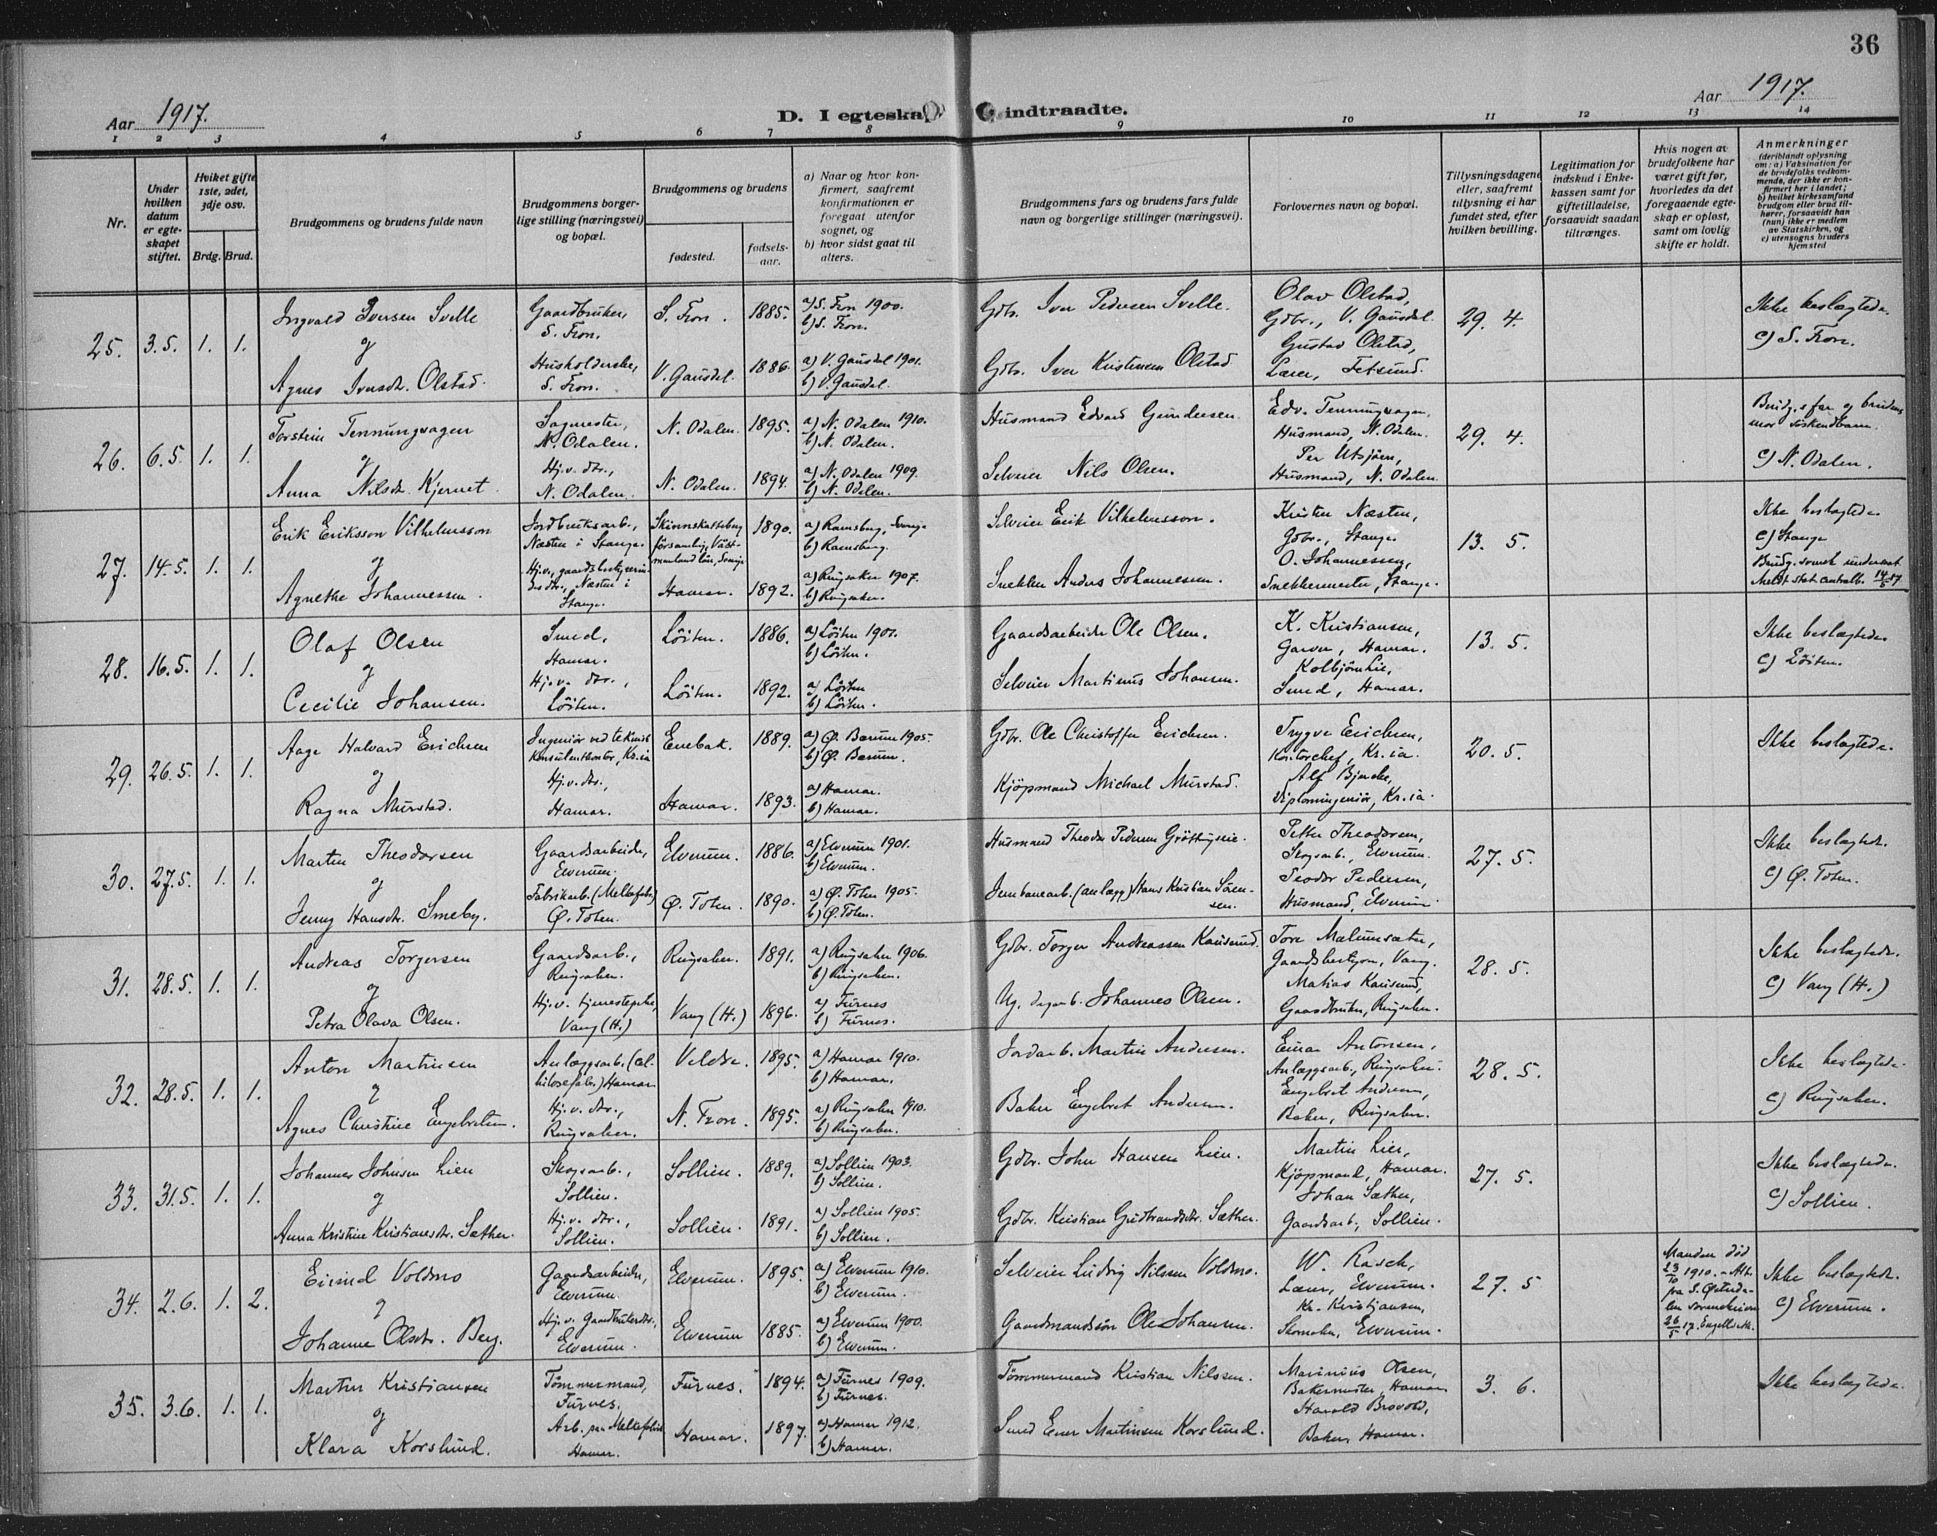 36
Aar 1917.
D. I egteska
indtraadte.
Aar 1917.
1 2 3 4 5 6 7 8 9 10 11 12 13 14
Nr.
Under hvilken datum er egteskapet stiftet.
Hvilket gifte 1ste, 2det, 3dje osv.
Brdg. Brud.
Brudgommens og brudens fulde navn
Brudgommens borgerlige stilling (næringsvei) og bopæl.
Brudgommens og brudens
fødested.
fødselsaar.
a) Naar og hvor konfirmert, saafremt konfirmationen er foregaat utenfor sognet, og
b) hvor sidst gaat til alters.
Brudgommens fars og brudens fars fulde navn og borgerlige stillinger (næringsvei).
Forlovernes navn og bopæl.
Tillysningsdagene eller, saafremt tillysning ei har fundet sted, efter hvilken bevilling.
Legitimation for indskud i Enkekassen samt for giftetilladelse, forsaavidt saadan tiltrænges.
Hvis nogen av brudefolkene har været gift før, hvorledes da det foregaaende egteskap er opløst, samt om lovlig skifte er holdt.
Anmerkninger
(deriblandt oplysning om: a) Vaksination for de brudefolks vedkommende, der ikke er konfirmert her i landet; b) hvilket kirkesamfund brudgom eller brud tilhører, forsaavidt han (hun) ikke er medlem av Statskirken, og c) utensogns bruders hjemsted
25. 3.5. 1. 1.
Ingvald Iversen Svelle
og
Agnes Iversdt. Olstad.
Gaardbruker, S. Fron.
Husholderske, S. Fron.
S. Fron. 1885.
V. Gausdal. 1886.
a) S. Fron 1900.
b) S. Fron.
a) V. Gausdal 1901.
b) V. Gausdal.
Gdbr. Iver Pedersen Svelle.
Gdbr. Iver Kristensen Olstad
Olav Olstad,
Gdbr., V. Gausdal.
Gustav Olstad,
Lærer, Fetsund.
29. 4.
Ikke beslægtede.
c) S. Fron.
26. 6.5. 1. 1.
Torstein Tenningvagen
og
Anna Nilsdt. Kjernet.
Sagmester, N. Odalen.
Hj.v. dtr., N. Odalen.
N. Odalen. 1895.
N. Odalen. 1894.
a) N. Odalen 1910.
b) N. Odalen.
a) N. Odalen 1909.
b) N. Odalen.
Husmand Edvard Gundersen.
Selveier Nils Olsen.
Edv. Tenningvagen
Husmand, N. Odalen.
Per Utsjøen,
Husmand, N. Odalen.
29. 4.
Brudg.s far og brudens mor søskendbarn.
c) N. Odalen.
27. 14.5. 1. 1.
Erik Eriksson Vilhelmsson
og
Agnethe Johannessen.
Jordbruksarb., Næsten i Stange.
Hj.v., gaardsbestyrerindes dtr., Næsten i Stange.
Skinnskatteberg församling, Västmanland län, Sverige 1890.
Hamar. 1892.
a) Ramsberg, Sverige
b) Ramsberg.
a) Ringsaker 1907.
b) Ringsaker.
Selveier Erik Vilhelmsson.
Snekker Anders Johannesen.
Kristen Næsten,
Gdbr., Stange.
O. Johannessen,
Snekkermester, Stange.
13. 5.
Ikke beslægtede.
c) Stange
Brudg. svensk undersaat
Meldt stat. centralb. 14/5 17.
28. 16.5. 1. 1.
Olaf Olsen
og
Cecilie Johansen.
Smed, Hamar.
Hj.v. dtr., Løiten.
Løiten. 1886.
Løiten. 1892.
a) Løiten 1901.
b) Løiten.
a) Løiten
b) Løiten.
Gaardsarbeider Ole Olsen.
Selveier Martinus Johansen.
K. Kristiansen,
Garver, Hamar.
Kolbjørn Lie,
Smed, Hamar.
13. 5.
Ikke beslægtede.
c) Løiten.
29. 26.5. 1. 1.
Aage Halvard Erichsen
og
Ragna Murstad.
Ingeniør ved teknisk konsulentkontor, Kr.ia
Hj.v. dtr., Hamar.
Enebak. 1889.
Hamar. 1893.
a) Ø. Bærum 1905.
b) Ø. Bærum.
a) Hamar.
b) Hamar.
Gdbr. Ole Christoffer Erichsen.
Kjøpmand Michael Murstad.
Trygve Erichsen,
Kontorchef, Kr.ia.
Alf Bjercke,
Diplomingeniør, Kr.ia.
20. 5.
Ikke beslægtede.
30. 27.5. 1. 1.
Martin Theodorsen
og
Jenny Hansdt. Smeby.
Gaardsarbeider, Elverum.
Fabrikarb. (Melkefabr.) Ø. Toten.
Elverum. 1886.
Ø. Toten. 1890.
a) Elverum 1901.
b) Elverum.
a) Ø. Toten 1905.
b) Ø. Toten.
Husmand Theodor Pedersen
Jernbanearb. (anlægg) Hans Kristian Sørensen.
Petter Theodorsen,
Skogsarb., Elverum.
Teodor Pedersen,
Husmand, Elverum.
27. 5.
Ikke beslægtede.
c) Ø. Toten.
31. 28.5. 1. 1.
Andreas Torgersen
og
Petra Olava Olsen.
Gaardsarb., Ringsaker.
Hj.v. tjenestepike, Vang (H.)
Ringsaker. 1891.
Vang (H.) 1896.
a) Ringsaker 1906.
b) Ringsaker.
a) Furnes
b) Furnes.
Gdbr. Torger Andreassen Kausrud.
Ug. dagarb. Johannes Olsen.
Tore Mælumsæter,
Gaardsbestyrer, Vang.
Matias Kausrud,
Gaardbruker, Ringsaker.
28. 5.
Ikke beslægtede.
c) Vang (H.)
32. 28.5. 1. 1.
Anton Martinsen
og
Agnes Christine Engebretsen.
Anlægsarb. (cellulosefabr.) Hamar
Hj.v. dtr., Ringsaker.
Veldre. 1895.
N. Fron. 1895.
a) Hamar 1910.
b) Hamar.
a) Ringsaker 1910.
b) Ringsaker.
Jordarb. Martin Andersen.
Baker Engebret Andersen.
Einar Antonsen,
Anlægsarb., Ringsaker.
Engebret Andersen,
Baker, Ringsaker.
28. 5.
Ikke beslægtede.
c) Ringsaker.
33. 31.5. 1. 1.
Johannes Johnsen Lien
og
Anna Kristine Kristiansdt. Sæther.
Skogsarb., Sollien.
Hj.v. dtr., Sollien.
Sollien. 1889.
Sollien. 1891.
a) Sollien 1903.
b) Sollien.
a) Sollien 1905.
b) Sollien.
Gdbr. John Hansen Lien.
Gdbr. Kristian Gudbrandsdt. Sæther.
Martin Lier,
Kjøpmand, Hamar.
Johan Sæther,
Gaardsarb., Sollien.
27. 5.
Ikke beslægtede.
c) Sollien.
34. 2.6. 1. 2.
Eivind Voldmo
og
Johanne Olsdtr. Berg.
Gaardsarbeider, Elverum.
Hj.v. Gaardbrukerdtr., Elverum.
Elverum. 1895.
Elverum 1885.
a) Elverum 1910.
b) Elverum.
a) Elverum 1900.
b) Elverum.
Selveier Ludvig Nilssen Voldmo.
Gaardmandssøn Ole Johansen.
W. Rasch,
Lærer, Elverum.
Kr. Kristiansen,
Skomaker, Elverum.
27. 5
Manden død 23/10 1910. - Att. fra S. Østerdalen sorenskriveri 26/5 17.
Ikke beslægtede.
c) Elverum.
35. 3.6. 1. 1.
Martin Kristiansen
og
Klara Korslund.
Tømmermand, Furnes.
Arb. paa Melkefabrik Hamar.
Furnes. 1894.
Hamar. 1897.
a) Furnes 1909.
b) Furnes.
a) Hamar 1912.
b) Hamar.
Tømmermand Kristian Nilssen.
Smed Ener Martinsen Korslund.
Marinius Olsen,
Bakermester, Hamar
Harald Brovold,
Baker, Hamar.
3. 6.
Ikke beslægtede.